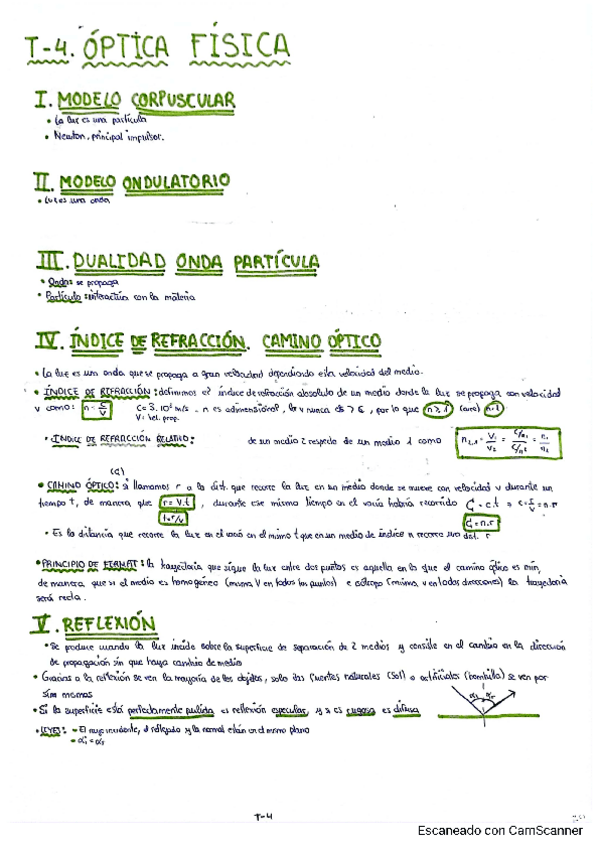 T-4. ÓPTICA FÍSICA
I. MODELO CORPUSCULAR
• La luz es una partícula
• Newton, principal impulsor.
II. MODELO ONDULATORIO
• Luz es una onda
III. DUALIDAD ONDA PARTÍCULA
• Onda: se propaga
• Partícula: interactúa con la materia
IV. ÍNDICE DE REFRACCIÓN. CAMINO ÓPTICO
• La luz es un onda que se propaga a gran velocidad dependiendo esta velocidad del medio.
• ÍNDICE DE REFRACCIÓN: definimos el índice de refracción absoluto de un medio donde la luz se propaga con velocidad
v como: n = c/v C = 3·10⁸ m/s - n es adimensional, la v nunca es > c, por lo que n ≥ 1 (aire) n=1
V = vel. prop.
• ÍNDICE DE REFRACCIÓN RELATIVO: de un medio 2 respecto de un medio 1 como n₂,₁ = V₁/V₂ =
• CAMINO ÓPTICO: si llamamos r a la dist. que recorre la luz en un medio donde se mueve con velocidad v durante un
tiempo t, de manera que r = v.t, durante ese mismo tiempo en el vacío habría recorrido = c.t = n.r
t = r/v = n.r
• Es la distancia que recorre la luz en el vacío en el mismo t que en un medio de índice n recorre una dist. r
• PRINCIPIO DE FERMAT: la trayectoria que sigue la luz entre dos puntos es aquella en la que el camino óptico es mín,
de manera que si el medio es homogéneo (misma V en todos los puntos) e isótropo (misma v en todas direcciones) la trayectoria
será recta.
V. REFLEXIÓN
• Se produce cuando la luz incide sobre la superficie de separación de 2 medios y consiste en el cambio en la dirección
de propagación sin que haya cambio de medio
• Gracias a la reflexión se ven la mayoría de los objetos, solo las fuentes naturales (Sol) o artificiales (bombilla) se ven por
sí mismas
• Si la superficie está perfectamente pulida es reflexión especular, y si es rugosa es difusa
• LEYES: - El rayo incidente, el reflejado y la normal están en el mismo plano
T-4
Escaneado con CamScanner